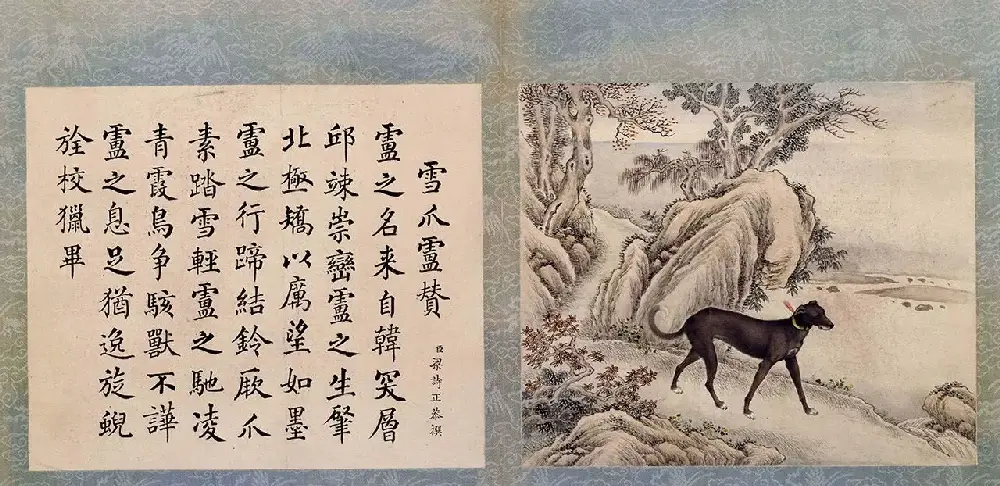 雪爪盧賛
臣梁詩正恭撰
盧之名来自韓突層
邱竦崇巒盧之生肇
北極矯以厲望如墨
盧之行蹄結鈴厥爪
素踏雪輕盧之馳凌
青霞鳥争駭獸不譁
盧之息足猶逸旋蜺
旌校獵畢